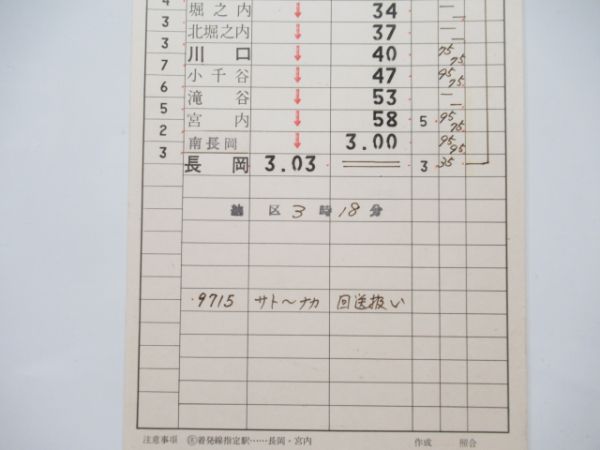 4
堀之内 ↓ 34 — —
3
北堀之内 ↓ 37 — —
3
川口 ↓ 40 75 75
7
小千谷 ↓ 47 95 75
6
滝谷 ↓ 53 — —
5
宮内 ↓ 58 5 95 75
2
南長岡 ↓ 3.00 95 95
3
長岡 3.03 ═ 3 35
区 3 時 18 分
9715 サト〜ナカ 回送扱い
注意事項 着発線指定駅……長岡・宮内 作成 照合